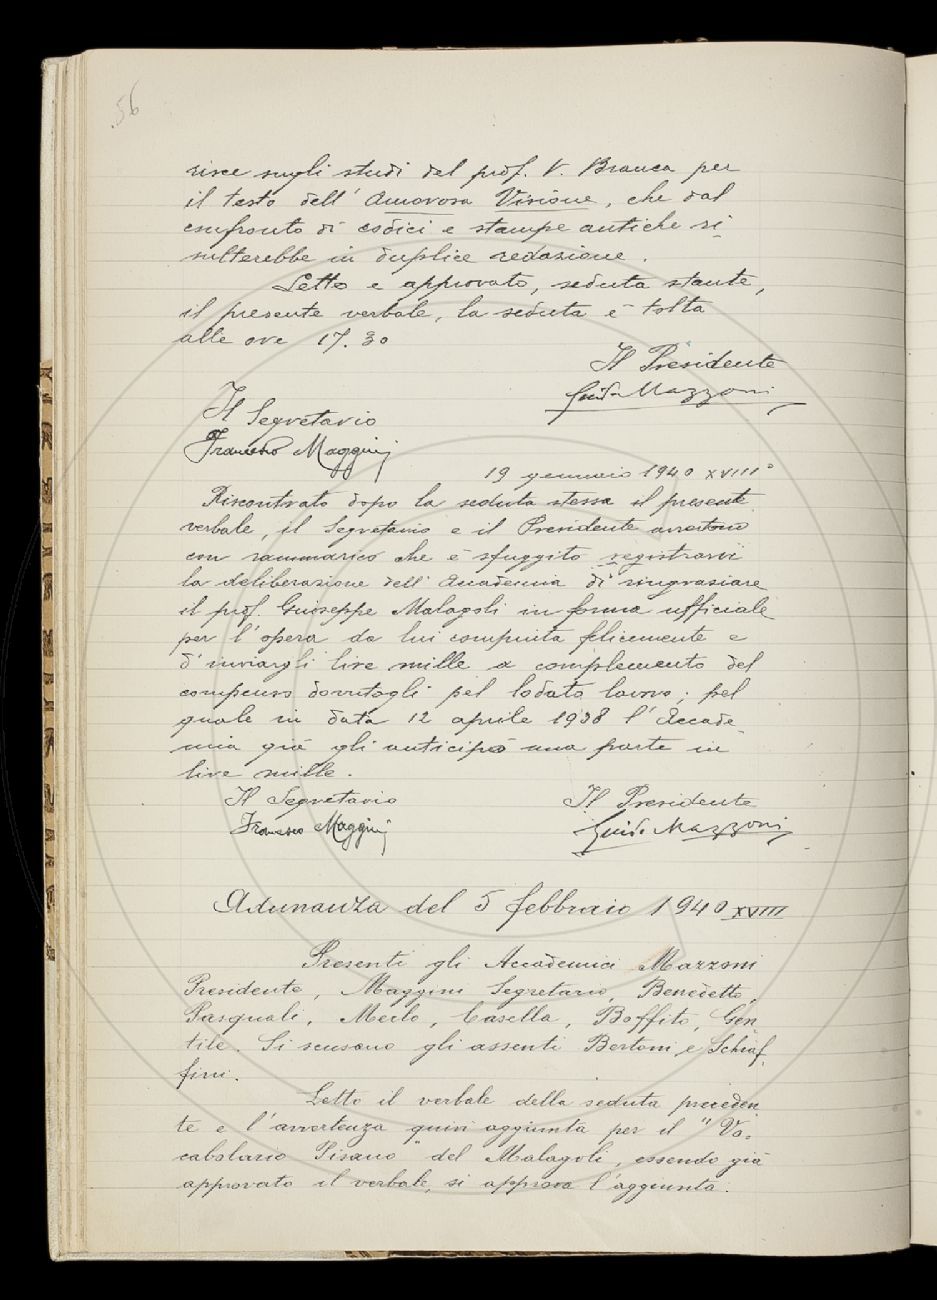 56
risce sugli studi del prof. V. Branca per
il testo dell' Amorosa Visione, che dal
confronto di codici e stampe antiche ri_
sulterebbe in duplice redazione.
Letto e approvato, seduta stante,
il presente verbale, la seduta è tolta
alle ore 17.30
Il Presidente
Guido Mazzoni
Il Segretario
Francesco Maggini
19 gennaio 1940 XVIII°
Riscontrato dopo la seduta stessa il presente
verbale, il Segretario e il Presidente avvertono
con rammarico che è sfuggito registrarvi
la deliberazione dell' Accademia di ringraziare
il prof. Giuseppe Malagoli in forma ufficiale
per l'opera da lui compiuta felicemente e
d'inviargli lire mille a complemento del
compenso dovutogli pel lodato lavoro; pel
quale in data 12 aprile 1938 l'Accade_
mia già gli anticipò una parte in
lire mille.
Il Segretario
Il Presidente
Francesco Maggini
Guido Mazzoni
Adunanza del 5 febbraio 1940 XVIII
Presenti gli Accademici Mazzoni
Presidente, Maggini Segretario, Benedetto,
Pasquali, Merlo, Casella, Boffito, Gen_
tile. Si scusano gli assenti Bertoni e Schiaf_
fini.
Letto il verbale della seduta preceden_
te e l'avvertenza quivi aggiunta per il "Vo_
cabolario Pisano" del Malagoli, essendo già
approvato il verbale, si approva l'aggiunta.